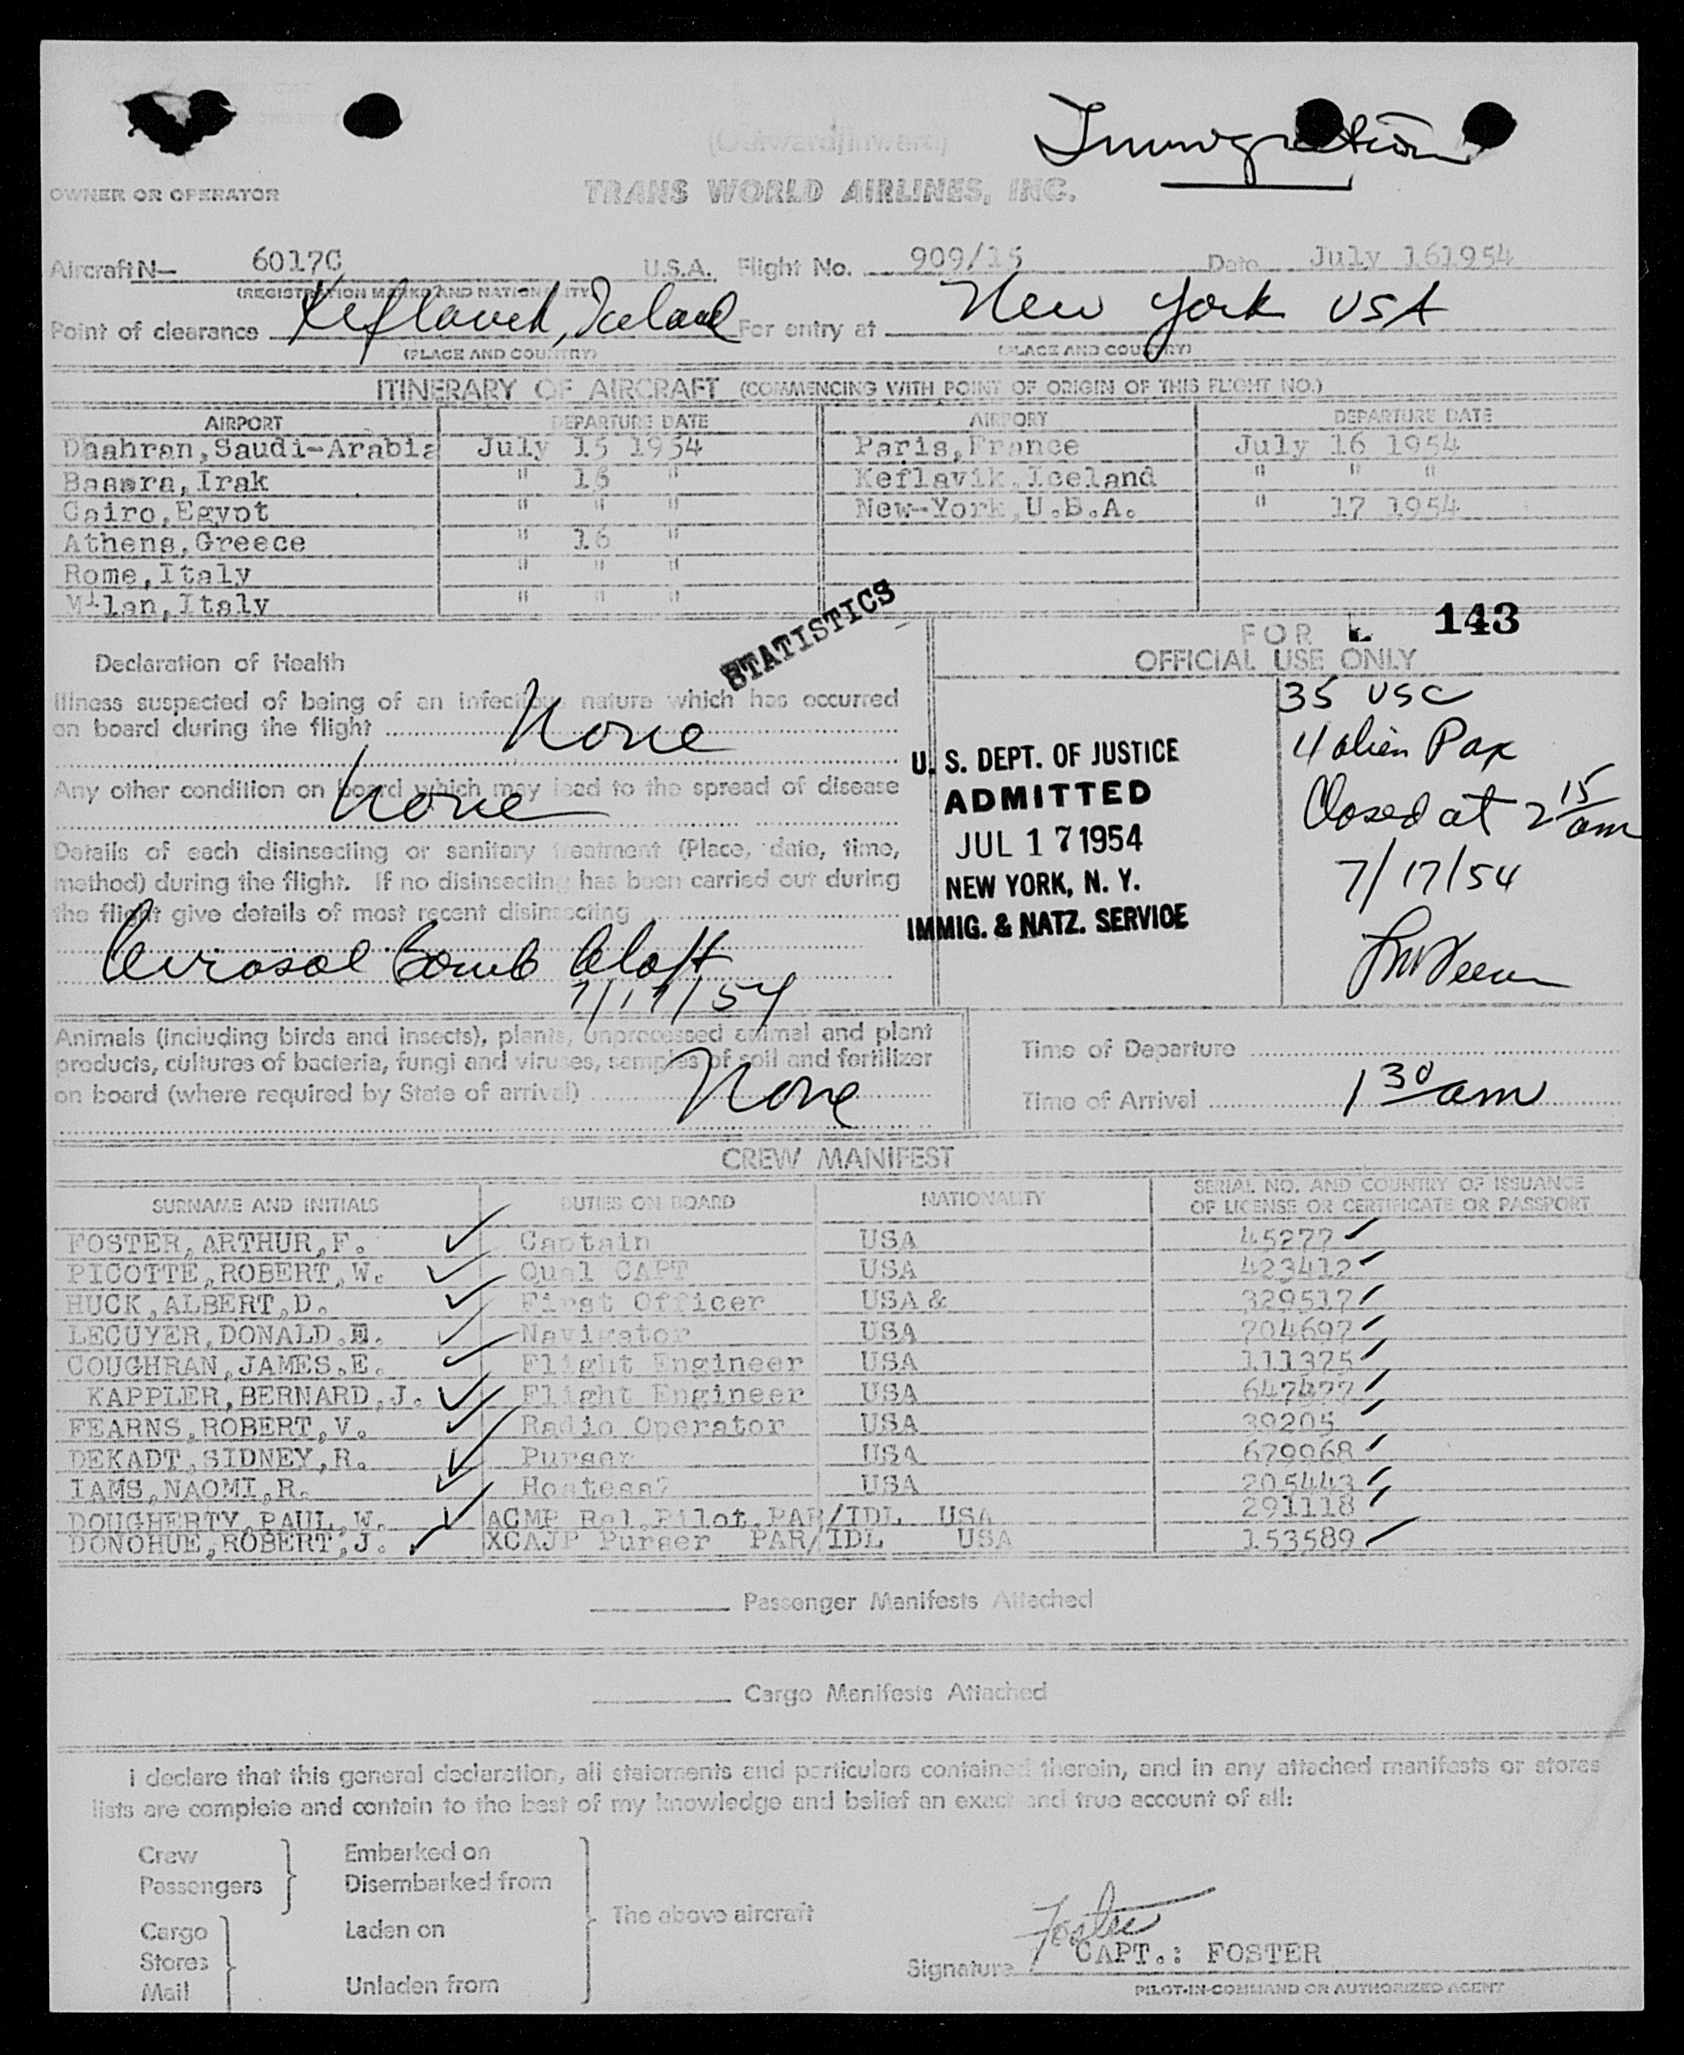 (Outward/Inward)
Immigration
OWNER OR OPERATOR
TRANS WORLD AIRLINES, INC.
Aircraft N— 6017C U.S.A. Flight No. 909/15 Date July 161954
(REGISTRATION MARKS AND NATIONALITY)
Point of clearance Keflavik, Iceland For entry at New York USA
(PLACE AND COUNTRY) (PLACE AND COUNTRY)
ITINERARY OF AIRCRAFT (COMMENCING WITH POINT OF ORIGIN OF THIS FLIGHT NO.)
AIRPORT DEPARTURE DATE AIRPORT DEPARTURE DATE
Dhahran, Saudi-Arabia July 15 1954 Paris, France July 16 1954
Basara, Irak " 16 " Keflavik, Iceland " " "
Cairo, Egypt " " " New-York, U.S.A. " 17 1954
Athens, Greece " 16 "
Rome, Italy " " "
Milan, Italy " " "
STATISTICS
FOR 143
OFFICIAL USE ONLY
Declaration of Health
Illness suspected of being of an infectious nature which has occurred
on board during the flight None
Any other condition on board which may lead to the spread of disease
None
Details of each disinsecting or sanitary treatment (Place, date, time,
method) during the flight. If no disinsecting has been carried out during
the flight give details of most recent disinsecting
Aerosol Bomb Aloft
7/17/54
U. S. DEPT. OF JUSTICE
ADMITTED
JUL 17 1954
NEW YORK, N. Y.
IMMIG. & NATZ. SERVICE
35 USC
4 alien Pax
Closed at 2 15 am
7/17/54
Animals (including birds and insects), plants, unprocessed animal and plant
products, cultures of bacteria, fungi and viruses, samples of soil and fertilizer
on board (where required by State of arrival) None
Time of Departure
Time of Arrival 1 30 am
CREW MANIFEST
SURNAME AND INITIALS DUTIES ON BOARD NATIONALITY SERIAL NO. AND COUNTRY OF ISSUANCE
OF LICENSE OR CERTIFICATE OR PASSPORT
FOSTER, ARTHUR, F. Captain USA 45277
PICOTTE, ROBERT, W. Qual CAPT USA 423412
HUCK, ALBERT, D. First Officer USA & 329517
LECUYER, DONALD. E. Navigator USA 704697
COUGHRAN, JAMES. E. Flight Engineer USA 111375
KAPPLER, BERNARD, J. Flight Engineer USA 647477
FEARNS, ROBERT, V. Radio Operator USA 39205
DEKADT, SIDNEY, R. Purser USA 679968
IAMS, NAOMI, R. Hostess? USA 205443
DOUGHERTY, PAUL, W. ACMP Rel. Pilot. PAR/IDL USA 291118
DONOHUE, ROBERT, J. XCAJP Purser PAR/IDL USA 153589
Passenger Manifests Attached
Cargo Manifests Attached
I declare that this general declaration, all statements and particulars contained therein, and in any attached manifests or stores
lists are complete and contain to the best of my knowledge and belief an exact and true account of all:
Crew Embarked on
Passengers Disembarked from
The above aircraft
Cargo Laden on
Stores
Mail Unladen from
Foster
Signature CAPT.: FOSTER
PILOT-IN-COMMAND OR AUTHORIZED AGENT